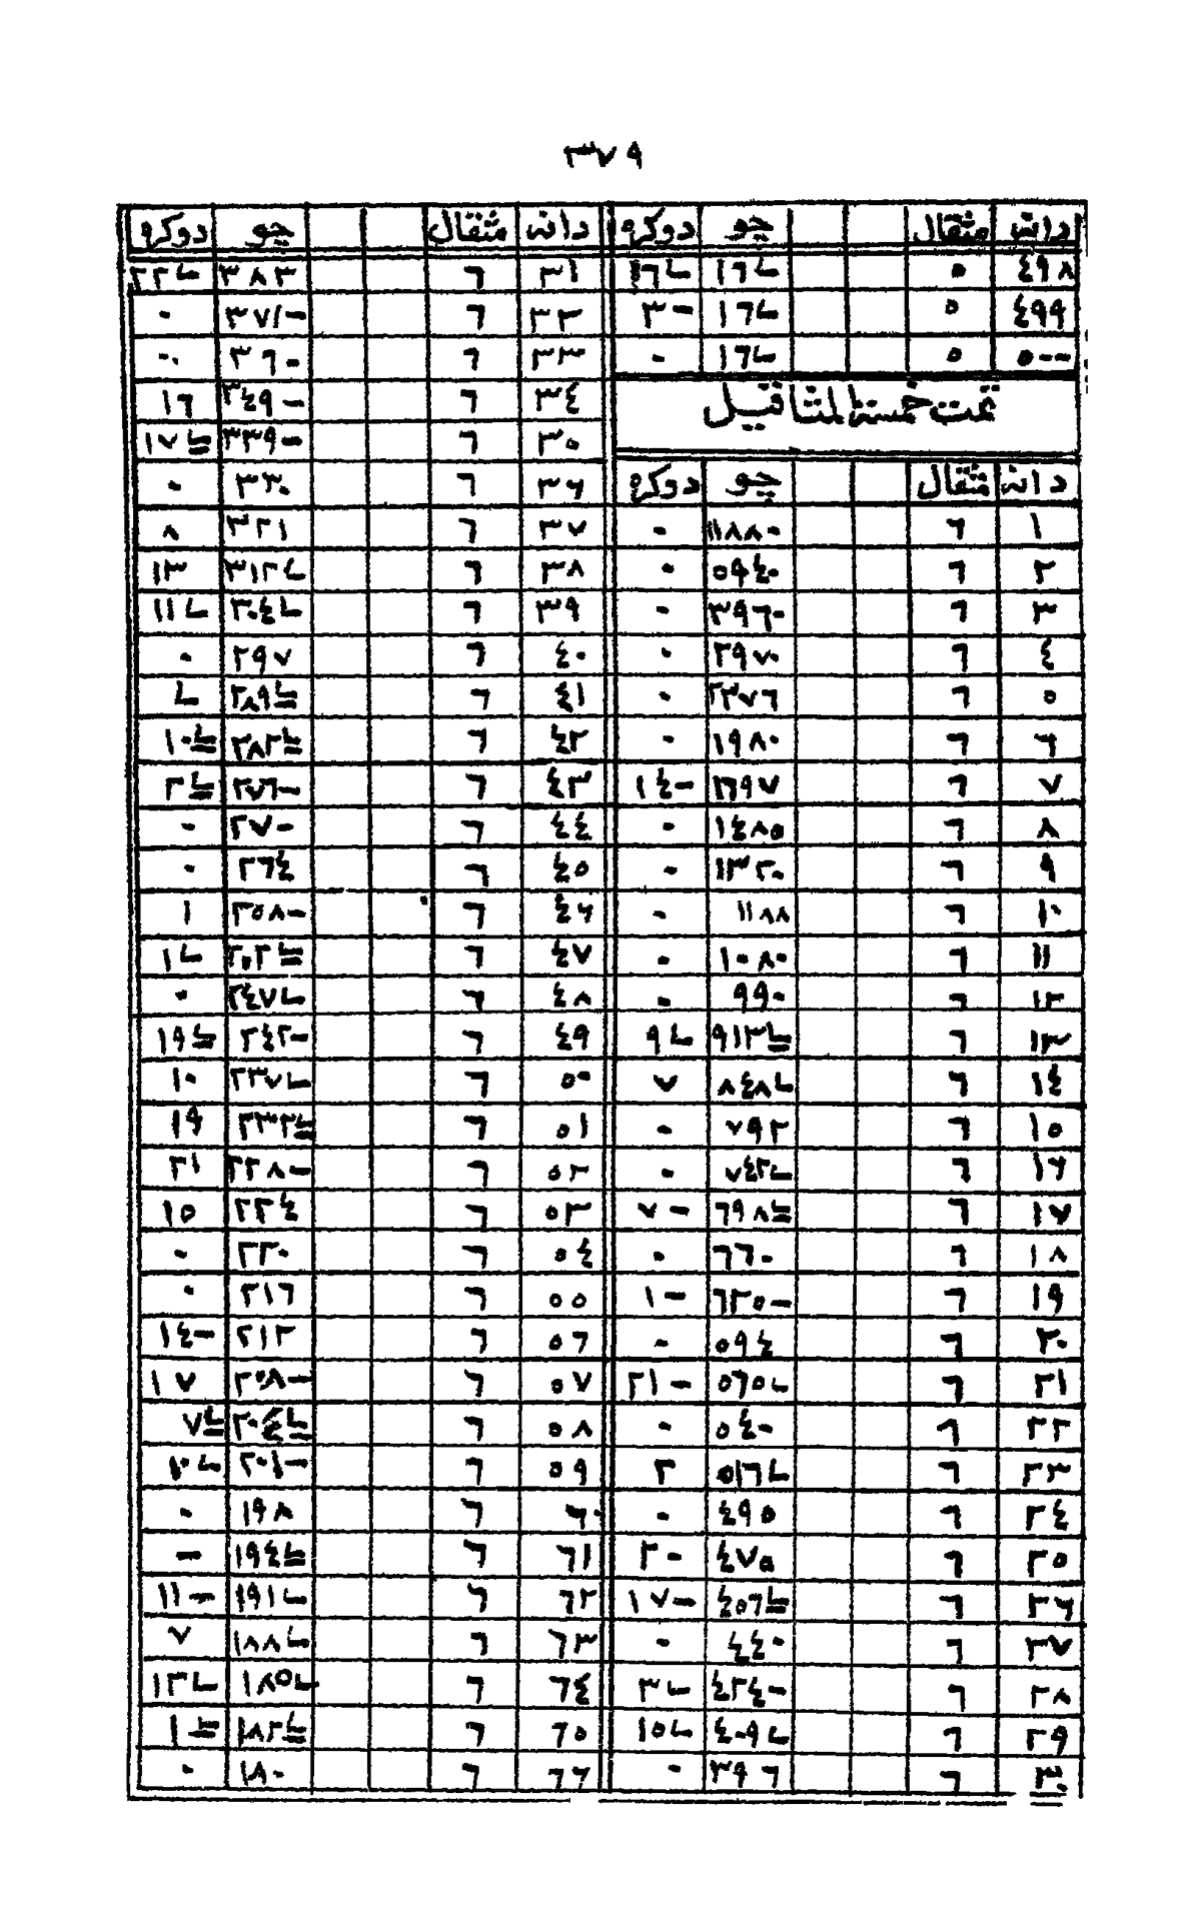 ٣٧٩
دانه مثقال چو دوكره
٤٩٨ ٥ ١٦L- ١٦L-
٤٩٩ ٥ ١٦L- ٣-
٥٠٠ ٥ ١٦L- ٠
تمت خمسة المثاقيل
دانه مثقال چو دوكره
١ ٦ ١١٨٨٠ ٠
٢ ٦ ٥٩٤٠ ٠
٣ ٦ ٣٩٦٠ ٠
٤ ٦ ٢٩٧٠ ٠
٥ ٦ ٢٣٧٦ ٠
٦ ٦ ١٩٨٠ ٠
٧ ٦ ١٦٩٧ ١٤-
٨ ٦ ١٤٨٥ ٠
٩ ٦ ١٣٢٠ ٠
١٠ ٦ ١١٨٨ ٠
١١ ٦ ١٠٨٠ ٠
١٢ ٦ ٩٩٠ ٠
١٣ ٦ ٩١٣L= ٩L-
١٤ ٦ ٨٤٨L- ٧
١٥ ٦ ٧٩٢ ٠
١٦ ٦ ٧٤٢L- ٠
١٧ ٦ ٦٩٨L= ٧-
١٨ ٦ ٦٦٠ ٠
١٩ ٦ ٦٢٥- ١-
٢٠ ٦ ٥٩٤ ٠
٢١ ٦ ٥٦٥L- ٢١-
٢٢ ٦ ٥٤٠ ٠
٢٣ ٦ ٥١٦L- ٢
٢٤ ٦ ٤٩٥ ٠
٢٥ ٦ ٤٧٥ ٢٠
٢٦ ٦ ٤٥٦L= ١٧-
٢٧ ٦ ٤٤٠ ٠
٢٨ ٦ ٤٢٤- ٣L-
٢٩ ٦ ٤٠٩L- ١٥L-
٣٠ ٦ ٣٩٦ ٠
دانه مثقال چو دوكره
٣١ ٦ ٣٨٣ ٢٢L-
٣٢ ٦ ٣٧١- ٠
٣٣ ٦ ٣٦٠ ٠
٣٤ ٦ ٣٤٩- ١٦
٣٥ ٦ ٣٣٩- ١٧L=
٣٦ ٦ ٣٣٠ ٠
٣٧ ٦ ٣٢١ ٨
٣٨ ٦ ٣١٢L- ١٣
٣٩ ٦ ٣٠٤L- ١١L-
٤٠ ٦ ٢٩٧ ٠
٤١ ٦ ٢٨٩L= L-
٤٢ ٦ ٢٨٢L= ١٠L=
٤٣ ٦ ٢٧٦- ٢L=
٤٤ ٦ ٢٧٠ ٠
٤٥ ٦ ٢٦٤ ٠
٤٦ ٦ ٢٥٨- ١
٤٧ ٦ ٢٥٢L= ١L-
٤٨ ٦ ٢٤٧L- ٠
٤٩ ٦ ٢٤٢- ١٩L=
٥٠ ٦ ٢٣٧L- ١٠
٥١ ٦ ٢٣٢L= ١٩
٥٢ ٦ ٢٢٨- ٢١
٥٣ ٦ ٢٢٤ ١٥
٥٤ ٦ ٢٢٠ ٠
٥٥ ٦ ٢١٦ ٠
٥٦ ٦ ٢١٢ ١٤-
٥٧ ٦ ٢٠٨- ١٧
٥٨ ٦ ٢٠٤L= ٧L=
٥٩ ٦ ٢٠١- ١٠L-
٦٠ ٦ ١٩٨ ٠
٦١ ٦ ١٩٤L= -
٦٢ ٦ ١٩١L- ١١-
٦٣ ٦ ١٨٨L- ٧
٦٤ ٦ ١٨٥L- ١٣L-
٦٥ ٦ ١٨٢L= ١L=
٦٦ ٦ ١٨٠ ٠